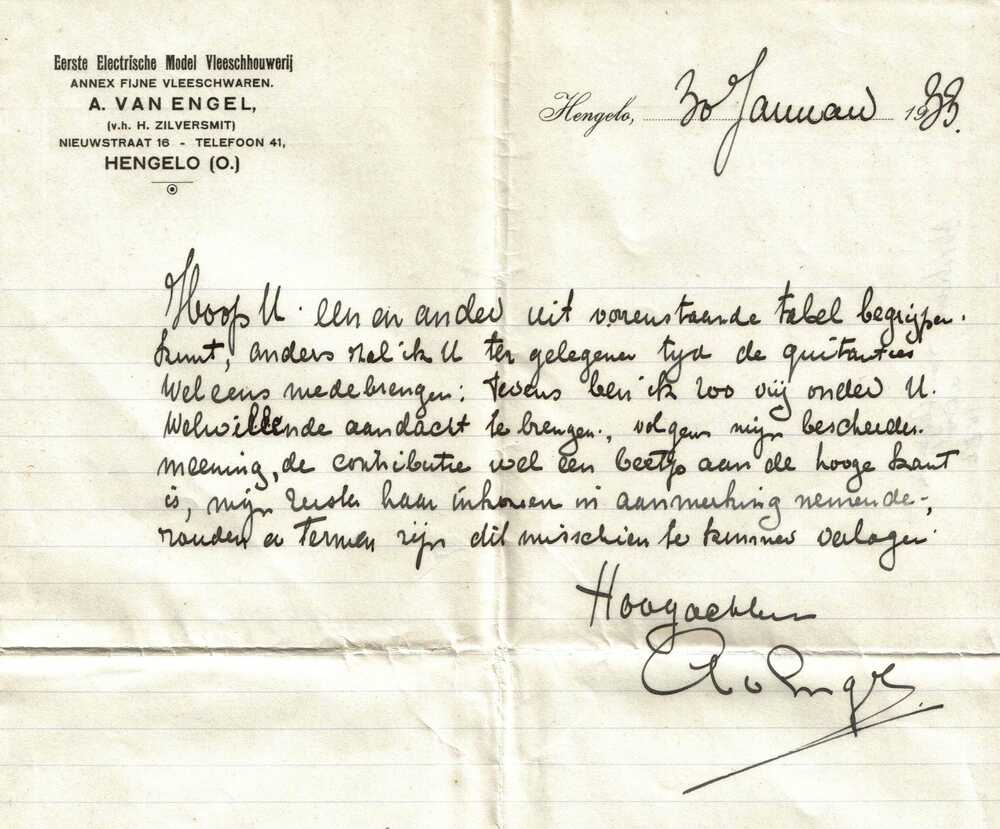 Eerste Electrische Model Vleeschhouwerij
ANNEX FIJNE VLEESCHWAREN.
A. VAN ENGEL,
(v.h. H. ZILVERSMIT)
NIEUWSTRAAT 16 - TELEFOON 41,
HENGELO (O.)
Hengelo, 30 Januari 1933.
Hoop U een en ander uit vorenstaande tabel begrijpen
kunt, anders zal ik U ter gelegener tyd de quitanties
wel eens medebrengen; tevens ben ik zoo vrij onder U.
Welwillende aandacht te brengen, volgens mijn bescheiden
meening, de contributie wel een beetje aan de hooge kant
is, mijn zuster haar inkomen in aanmerking nemende,
zouden er termen zijn dit misschien te kunnen verlagen
Hoogachtend
A v Engel